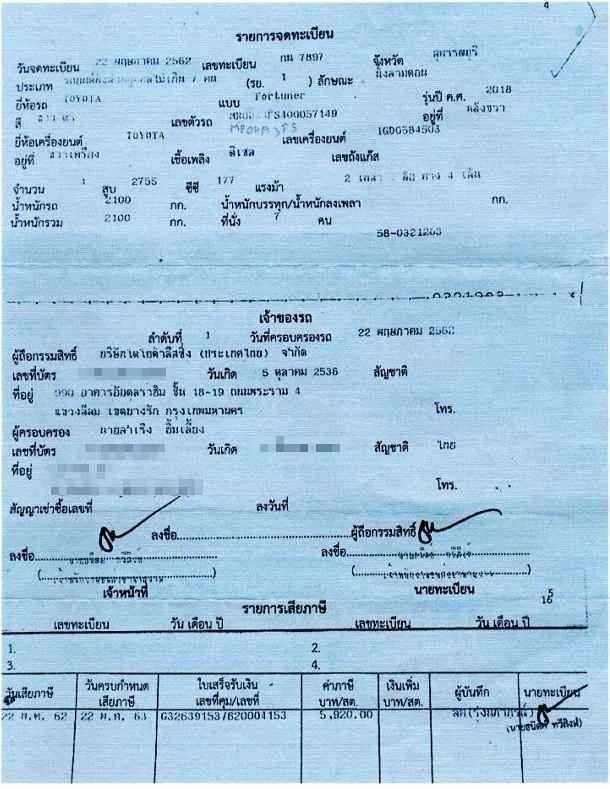 4
รายการจดทะเบียน
วันจดทะเบียน 22 พฤษภาคม 2562 เลขทะเบียน กน 7897 จังหวัด สุพรรณบุรี
ประเภท (รย. 1 ) ลักษณะ
ยี่ห้อรถ TOYOTA แบบ Fortuner รุ่นปี ค.ศ. 2018
สี เลขตัวรถ อยู่ที่
ยี่ห้อเครื่องยนต์ TOYOTA เลขเครื่องยนต์ 1GD0584503
อยู่ที่ เชื้อเพลิง ดีเซล เลขถังแก๊ส
จำนวน สูบ 2755 ซีซี 177 แรงม้า 2 เพลา ล้อ ยาง 4 เส้น
น้ำหนักรถ 2100 กก. น้ำหนักบรรทุก/น้ำหนักลงเพลา กก.
น้ำหนักรวม 2100 กก. ที่นั่ง 7 คน
58-0321203
เจ้าของรถ
ลำดับที่ 1 วันที่ครอบครองรถ 22 พฤษภาคม 2562
ผู้ถือกรรมสิทธิ์ บริษัทโตโยต้าลีสซิ่ง (ประเทศไทย) จำกัด
เลขที่บัตร วันเกิด 5 ตุลาคม 2536 สัญชาติ
ที่อยู่ 990 อาคารอับดุลราฮิม ชั้น 18-19 ถนนพระราม 4
แขวงสีลม เขตบางรัก กรุงเทพมหานคร โทร.
ผู้ครอบครอง
เลขที่บัตร วันเกิด สัญชาติ ไทย
ที่อยู่
โทร.
สัญญาเช่าซื้อเลขที่ ลงวันที่
ลงชื่อ ผู้ถือกรรมสิทธิ์
ลงชื่อ ลงชื่อ
เจ้าหน้าที่ นายทะเบียน
รายการเสียภาษี
5
16
เลขทะเบียน วัน เดือน ปี เลขทะเบียน วัน เดือน ปี
1. 2.
3. 4.
วันเสียภาษี วันครบกำหนด ใบเสร็จรับเงิน ค่าภาษี เงินเพิ่ม ผู้บันทึก นายทะเบียน
เสียภาษี เลขที่คุม/เลขที่ บาท/สต. บาท/สต.
22 พ.ค. 62 22 พ.ค. 63 G32639153/620004153 5,920.00